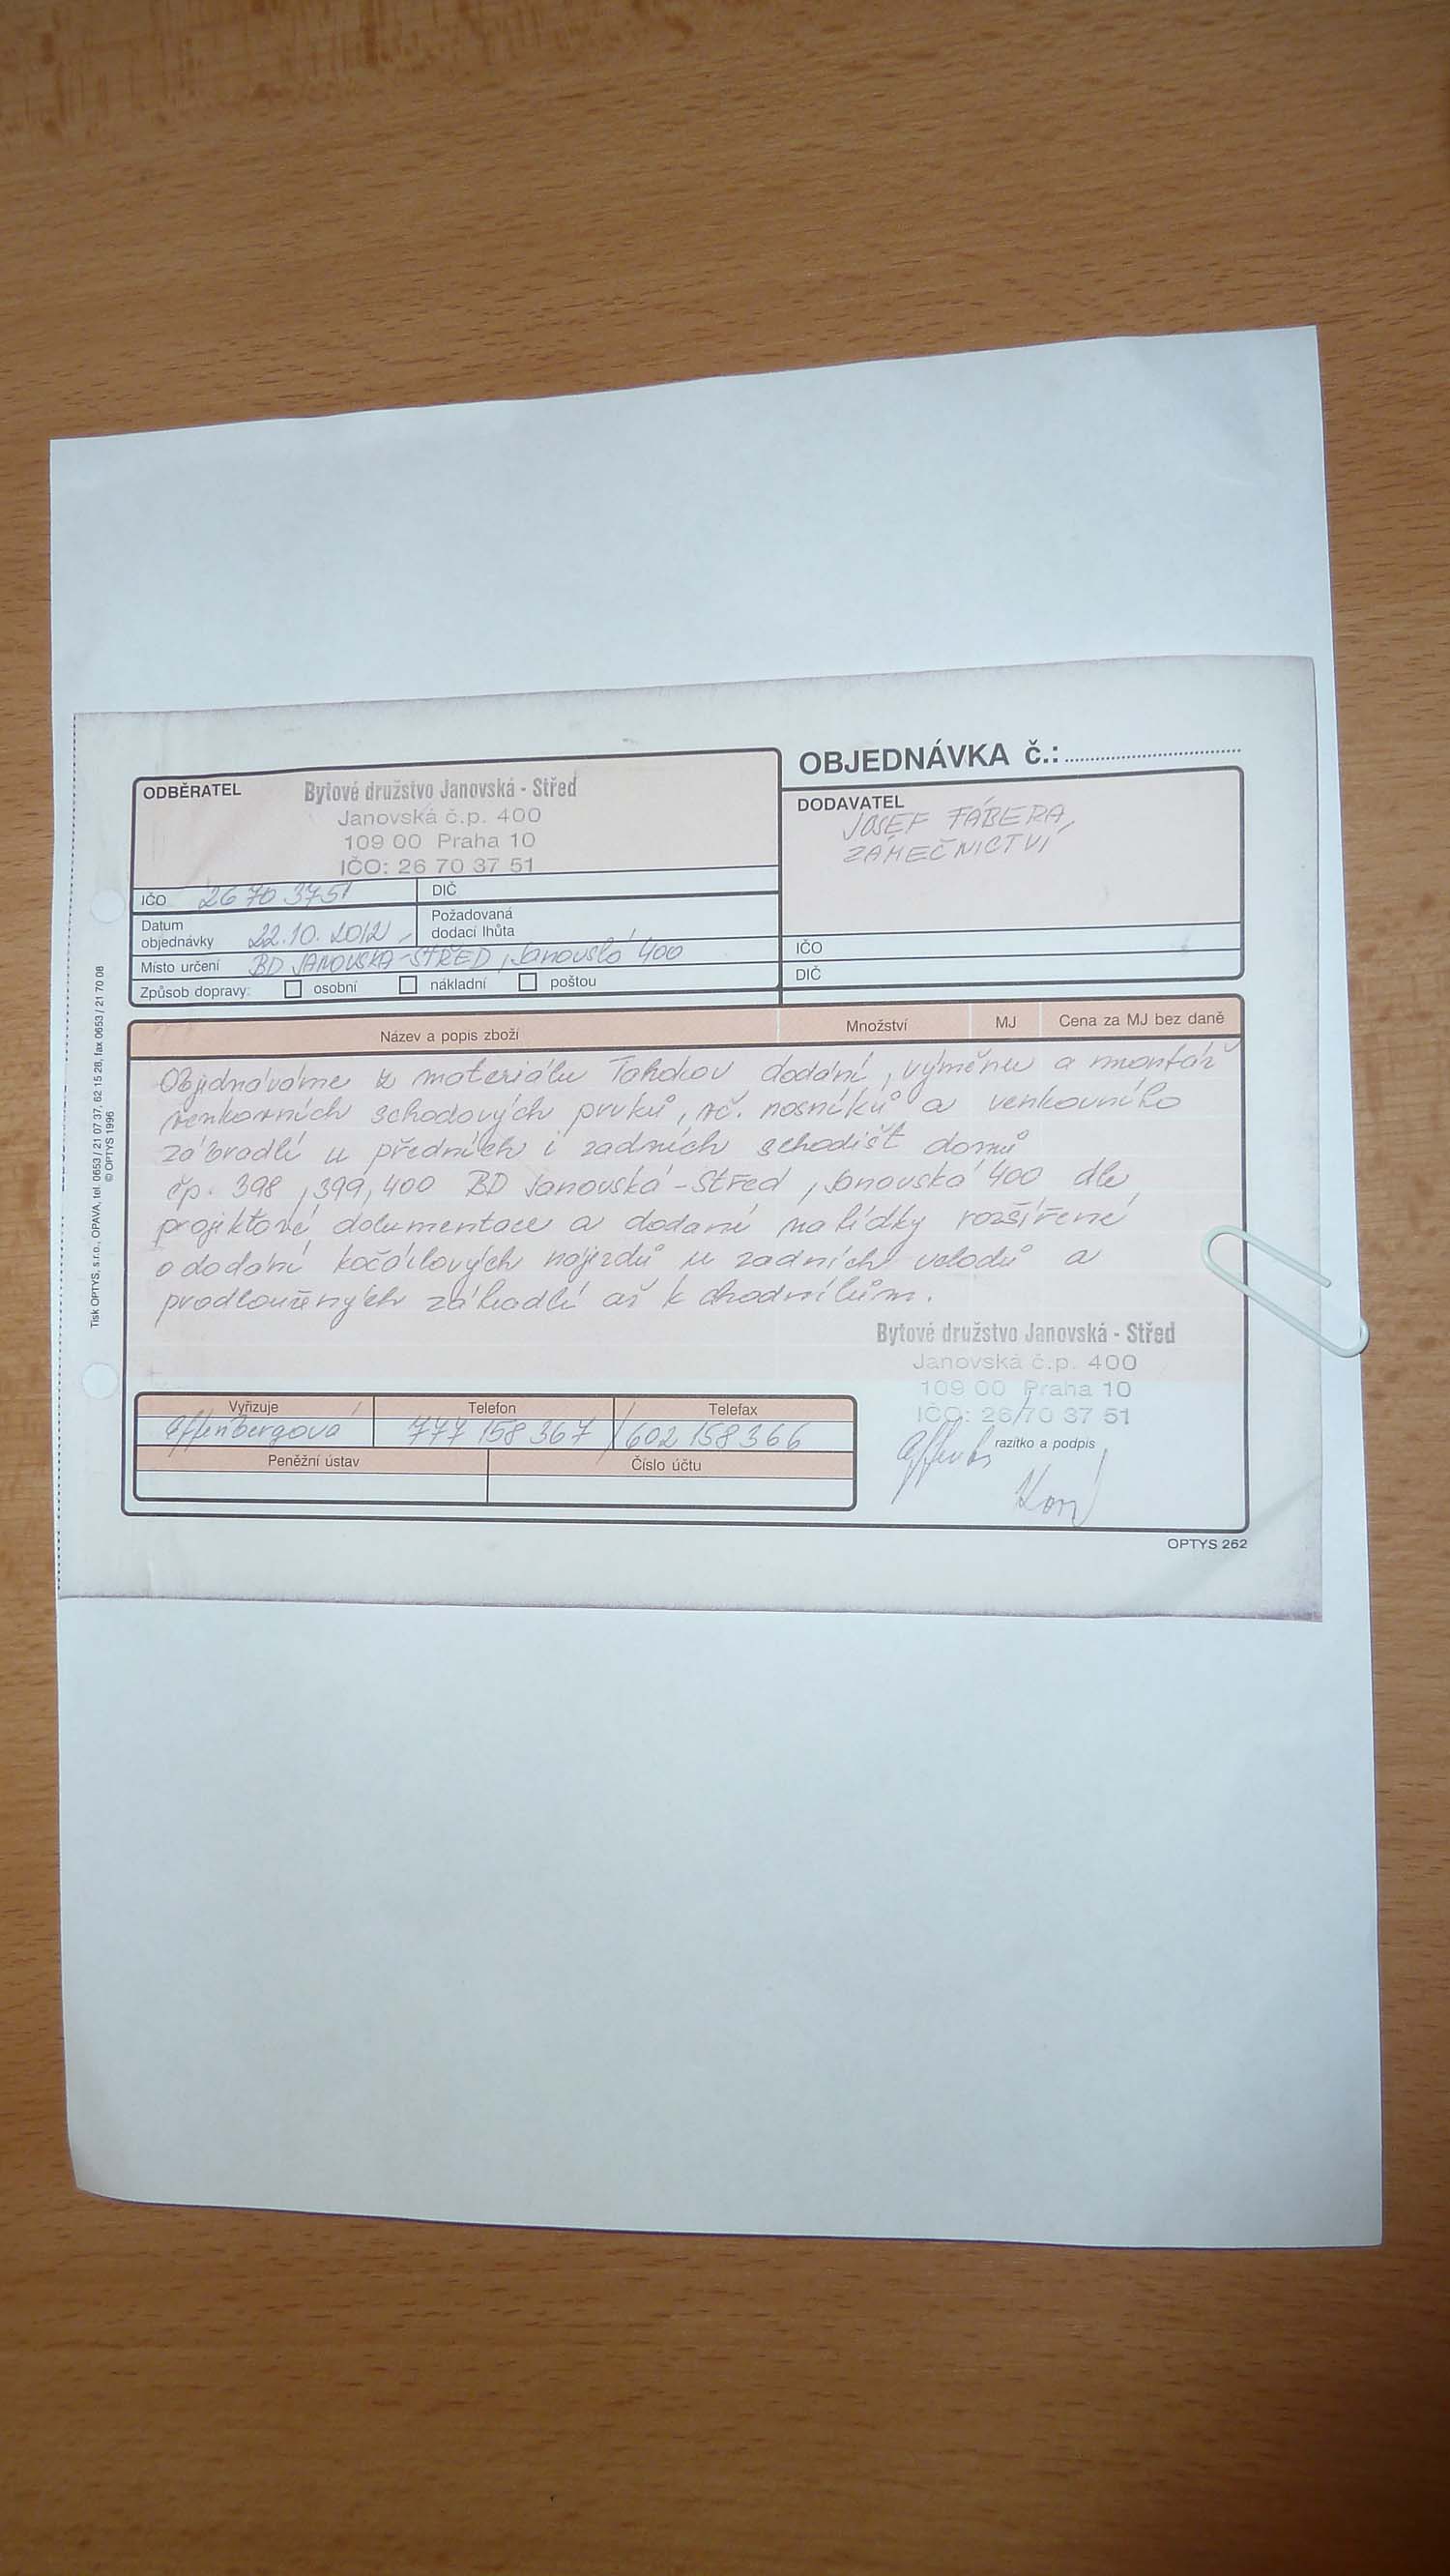 OBJEDNÁVKA č.:
ODBĚRATEL
Bytové družstvo Janovská - Střed
Janovská č.p. 400
109 00 Praha 10
IČO: 26 70 37 51
IČO 26 70 3751
DIČ
Datum objednávky 22.10.2012
Požadovaná dodací lhůta
Místo určení BD JANOVSKÁ-STŘED, Janovská 400
Způsob dopravy: osobní nákladní poštou
DODAVATEL
JOSEF FÁBERA,
ZÁMEČNICTVÍ
IČO
DIČ
Název a popis zboží Množství MJ Cena za MJ bez daně
Objednáváme z materiálu Tahokov dodání, výměnu a montáž
venkovních schodových prvků, vč. nosníků a venkovního
zábradlí u předních i zadních schodišť domů
čp. 398, 399, 400 BD Janovská-Střed, Janovská 400 dle
projektové dokumentace a dodané nabídky rozšířené
o dodání kočárkových nájezdů u zadních vchodů a
prodloužených zábradlí až k chodníkům.
Bytové družstvo Janovská - Střed
Janovská č.p. 400
109 00 Praha 10
IČO: 26 70 37 51
razítko a podpis
Vyřizuje Telefon Telefax
777 158 367 / 602 158 366
Peněžní ústav Číslo účtu
OPTYS 262
Tisk OPTYS, s.r.o., OPAVA, tel. 0653 / 21 07 37, 62 15 28, fax 0653 / 21 70 08
© OPTYS 1996